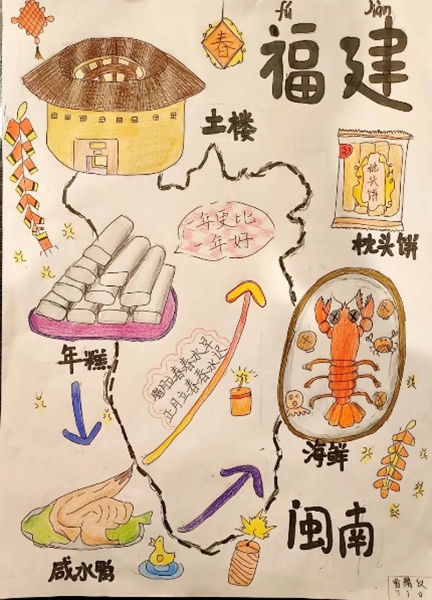 fú jiàn
福建
春
土楼
枕头饼
枕头饼
一年更比
一年好
年糕
腊月立春春水早
正月立春春水迟
海鲜
闽南
咸水鸭